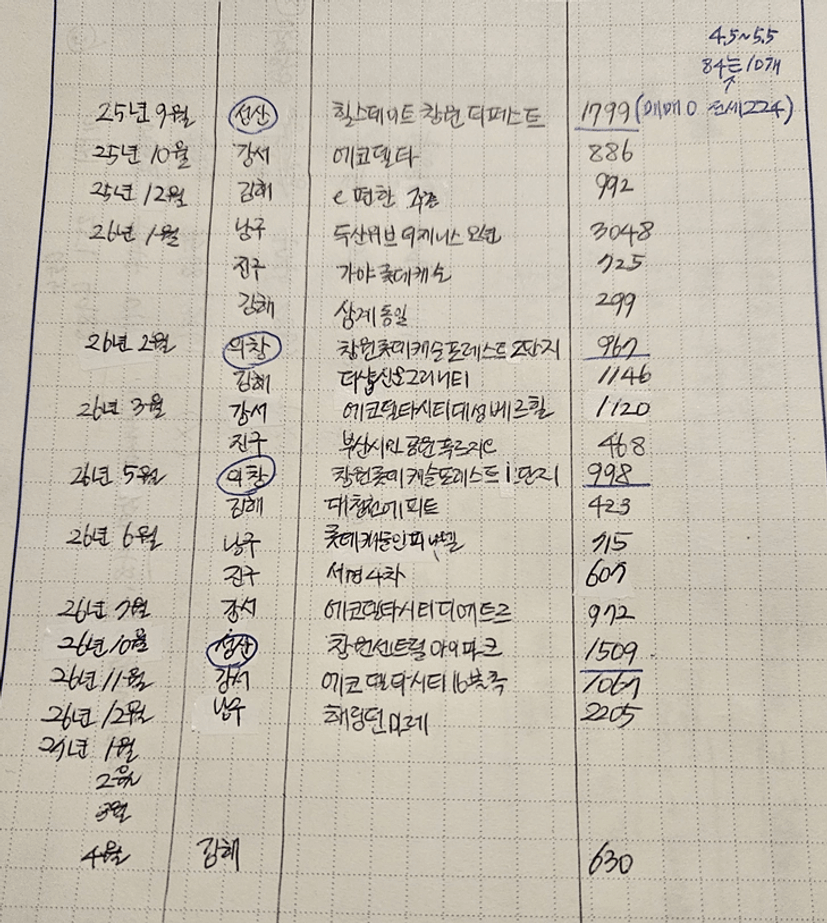 4.5~5.5
84는 10개
25년 9월 성산 힐스테이트 창원 더퍼스트 1799 (매매 0 전세 224)
25년 10월 강서 에코델타 886
25년 12월 김해 e편한 992
26년 1월 남구 두산위브더제니스 오션 3048
진구 가야롯데캐슬 725
김해 삼계동일 299
26년 2월 의창 창원롯데캐슬포레스트2단지 967
김해 더샵신문그리니티 1146
26년 3월 강서 에코델타시티대성베르힐 1120
진구 부산시민공원푸르지오 468
26년 5월 의창 창원롯데캐슬포레스트1단지 998
김해 대청천에피트 423
26년 6월 남구 롯데캐슬인피니엘 715
진구 서면4차 607
26년 7월 강서 에코델타시티디에트르 972
26년 10월 성산 창원센트럴아이파크 1509
26년 11월 강서 에코델타시티16블록 1067
26년 12월 남구 해링턴마레 2205
27년 1월
2월
3월
4월 김해 630